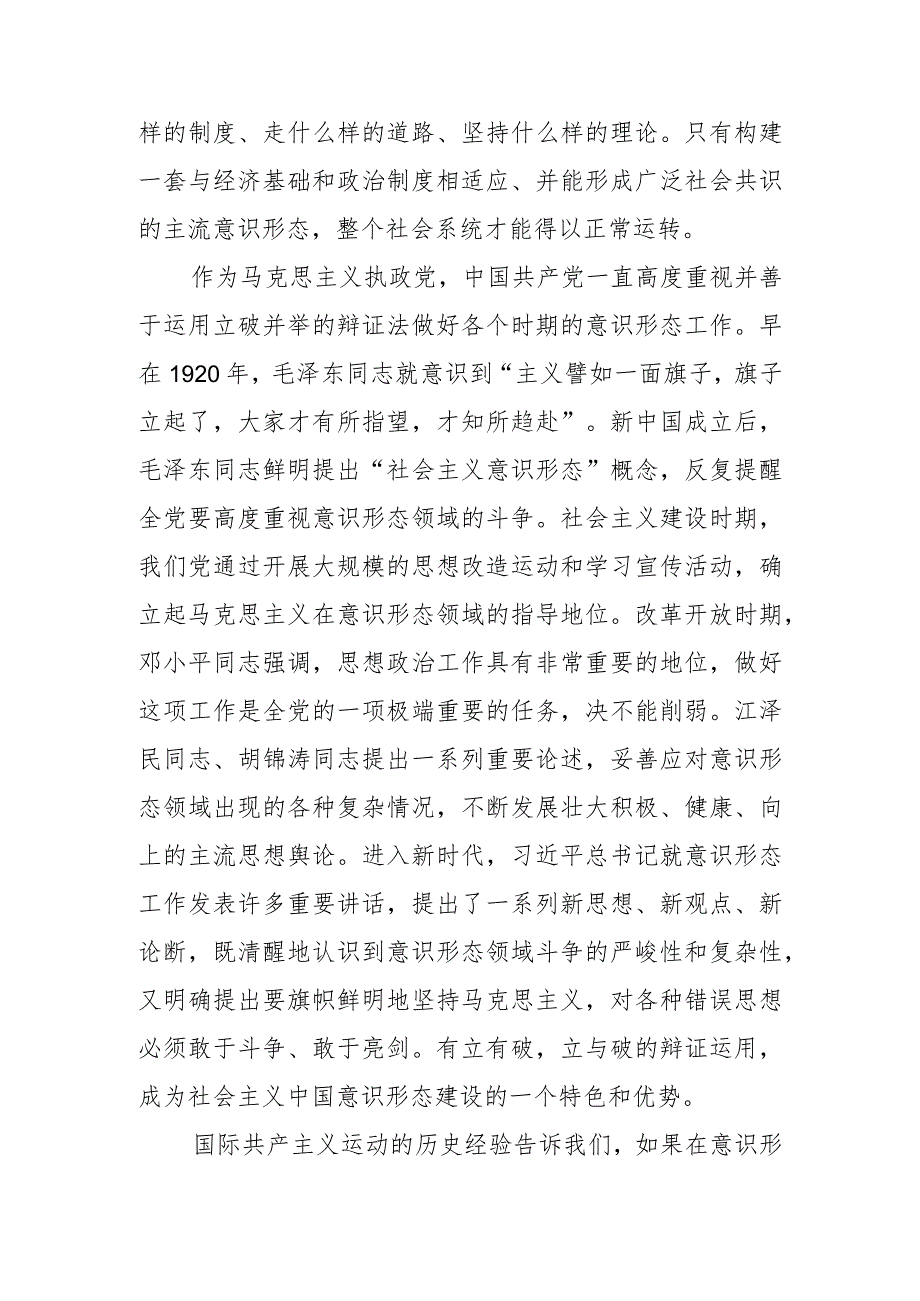 样的制度、走什么样的道路、坚持什么样的理论。只有构建
一套与经济基础和政治制度相适应、并能形成广泛社会共识
的主流意识形态，整个社会系统才能得以正常运转。
作为马克思主义执政党，中国共产党一直高度重视并善
于运用立破并举的辩证法做好各个时期的意识形态工作。早
在 1920 年，毛泽东同志就意识到“主义譬如一面旗子，旗子
立起了，大家才有所指望，才知所趋赴”。新中国成立后，
毛泽东同志鲜明提出“社会主义意识形态”概念，反复提醒
全党要高度重视意识形态领域的斗争。社会主义建设时期，
我们党通过开展大规模的思想改造运动和学习宣传活动，确
立起马克思主义在意识形态领域的指导地位。改革开放时期，
邓小平同志强调，思想政治工作具有非常重要的地位，做好
这项工作是全党的一项极端重要的任务，决不能削弱。江泽
民同志、胡锦涛同志提出一系列重要论述，妥善应对意识形
态领域出现的各种复杂情况，不断发展壮大积极、健康、向
上的主流思想舆论。进入新时代，习近平总书记就意识形态
工作发表许多重要讲话，提出了一系列新思想、新观点、新
论断，既清醒地认识到意识形态领域斗争的严峻性和复杂性，
又明确提出要旗帜鲜明地坚持马克思主义，对各种错误思想
必须敢于斗争、敢于亮剑。有立有破，立与破的辩证运用，
成为社会主义中国意识形态建设的一个特色和优势。
国际共产主义运动的历史经验告诉我们，如果在意识形